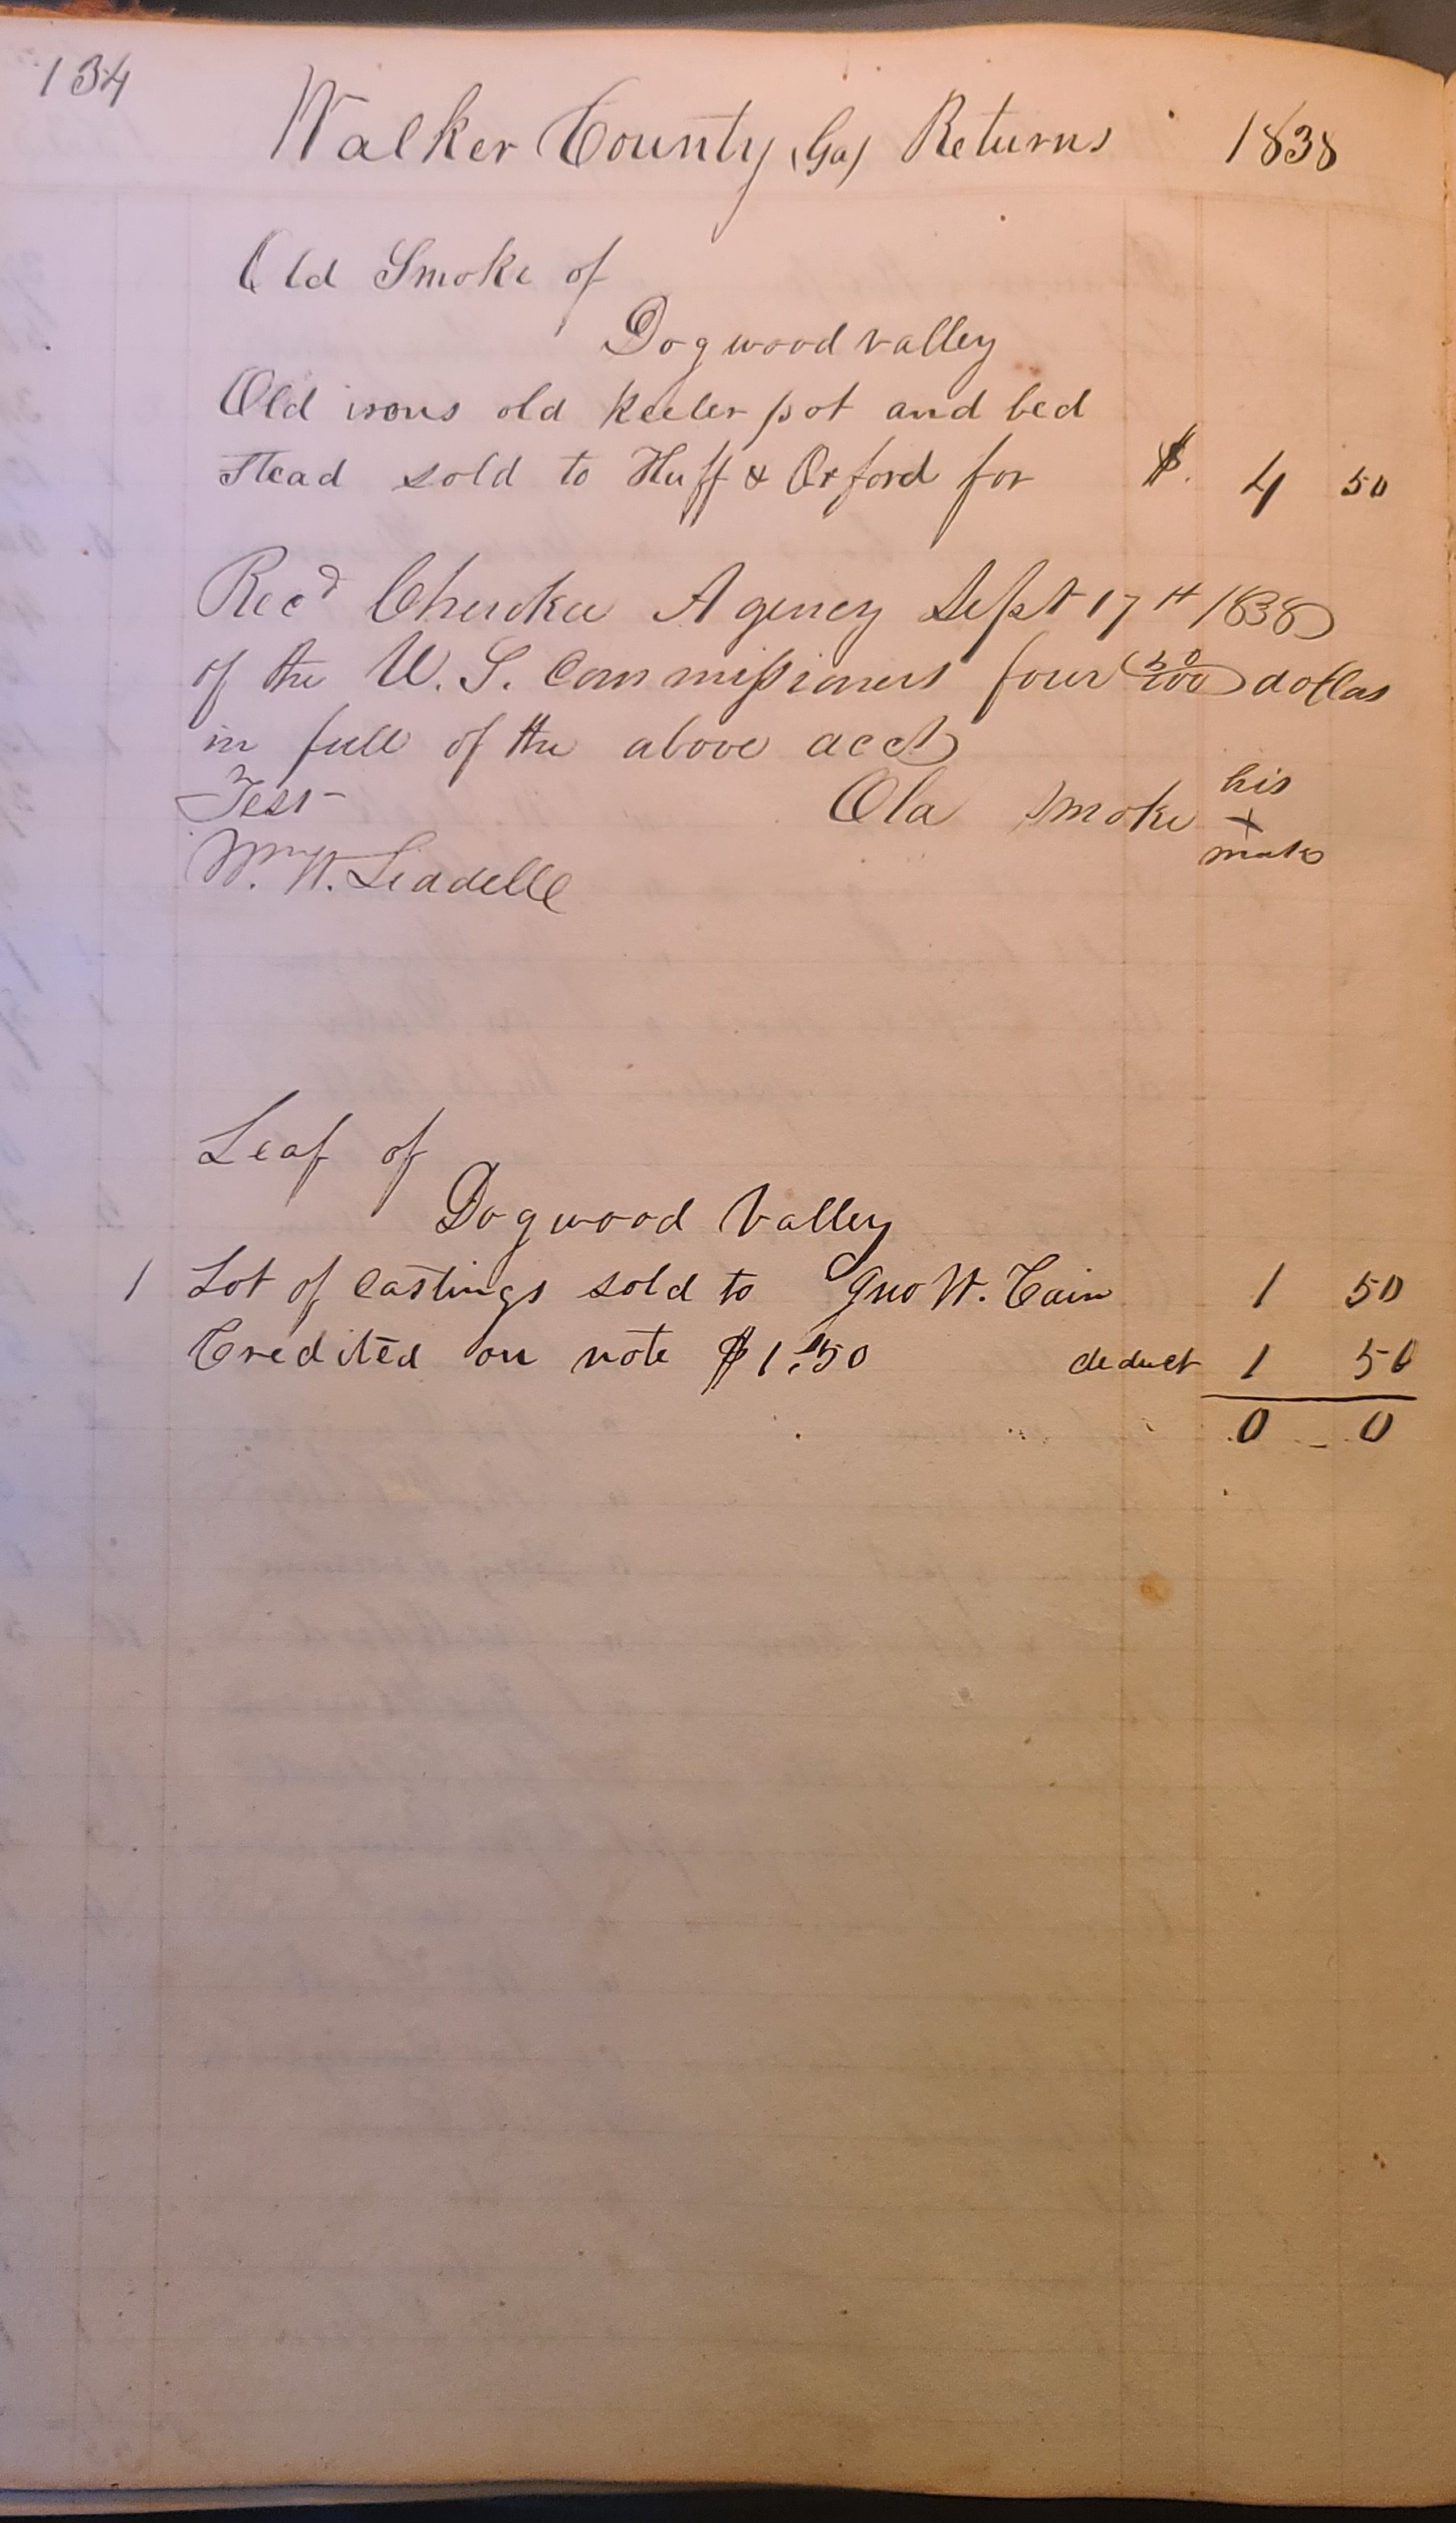 134
Walker County (Ga) Returns 1838
Old Smoke of
Dogwood valley
Old irons old keeler pot and bed
stead sold to Huff & Orford for $. 4 50
Recd Cherokee Agency Sept 17th 1838
of the U. S. Commissioners four 50/100 dollas
in full of the above acct
Test
Old Smoke his
+
mark
Wm. W. Liddelle
Leaf of
Dogwood Valley
1 Lot of castings sold to Geo W. Cain 1 50
Credited on note $1.50 deduct 1 50
0 0